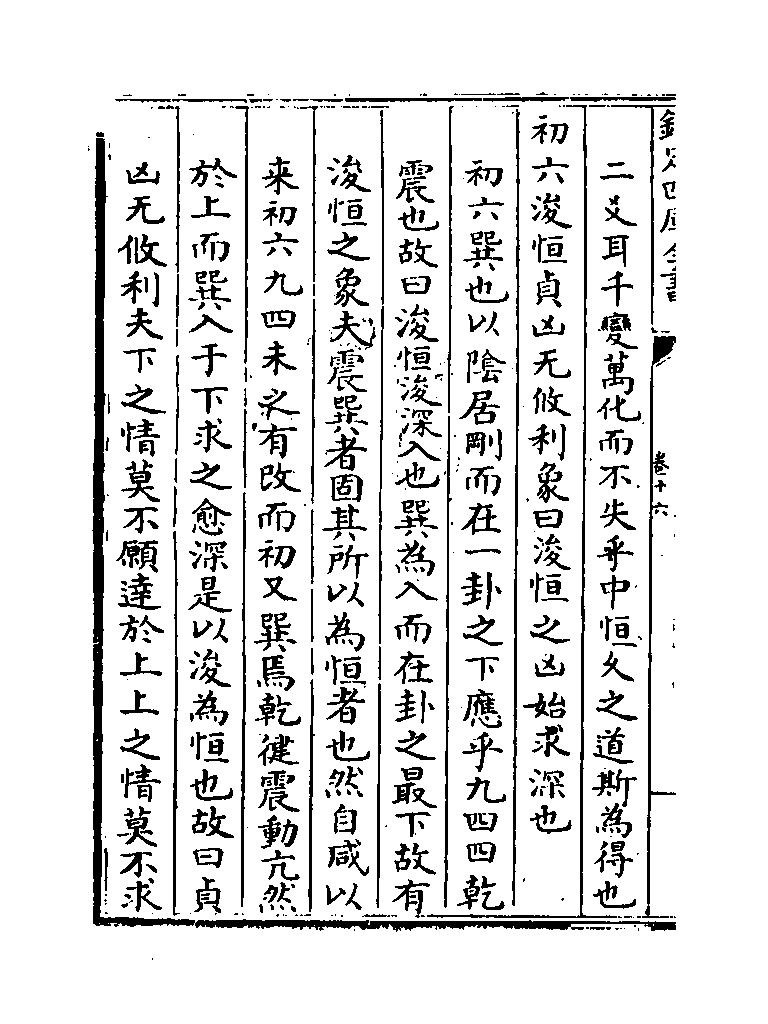 欽定四庫全書
卷十六
二爻耳千變萬化而不失乎中恒久之道斯為得也
初六浚恒貞凶无攸利象曰浚恒之凶始求深也
初六巽也以陰居剛而在一卦之下應乎九四四乾
震也故曰浚恒浚深入也巽為入而在卦之最下故有
浚恒之象夫震巽者固其所以為恒者也然自咸以
来初六九四未之有改而初又巽焉乾健震動亢然
於上而巽入于下求之愈深是以浚為恒也故曰貞
凶无攸利夫下之情莫不願達於上上之情莫不求